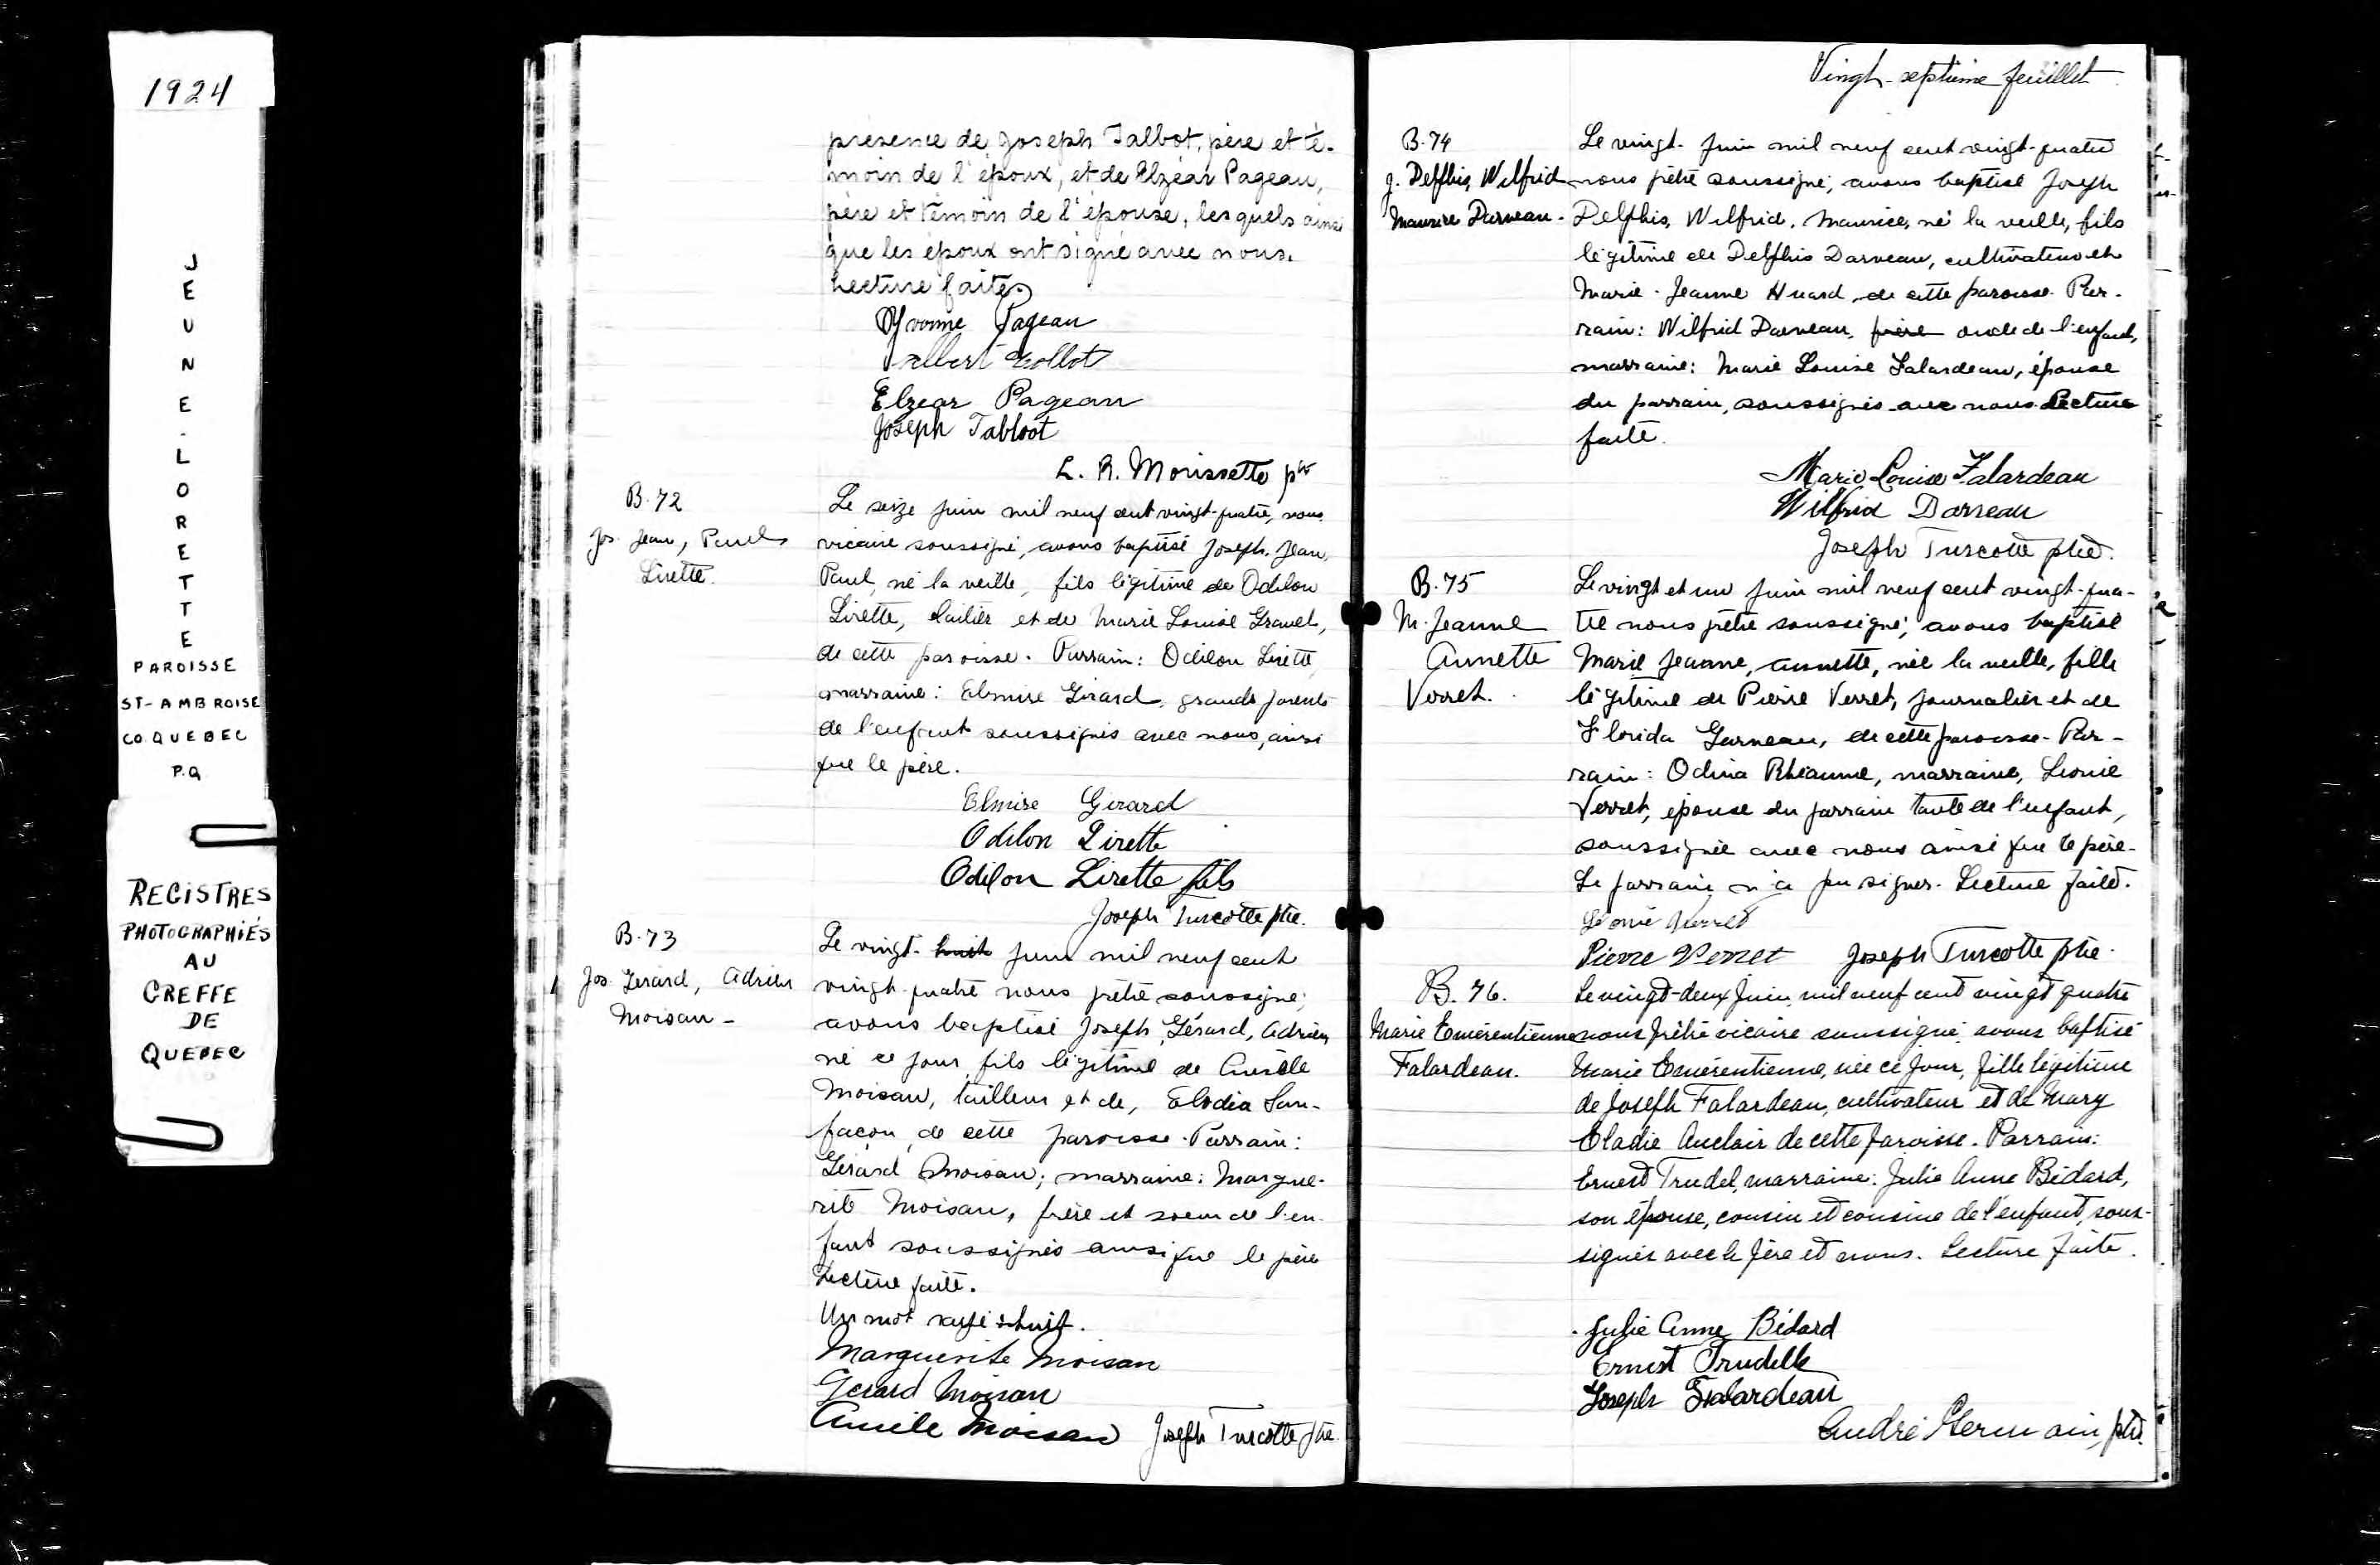 1924
JEUNE-LORETTE
PAROISSE
ST-AMBROISE
CO. QUEBEC
P.Q
REGISTRES
PHOTOGRAPHIÉS
AU
GREFFE
DE
QUEBEC
présence de Joseph Talbot, père et té-
moin de l'époux, et de Elzéar Pageau,
père et témoin de l'épouse, lesquels ainsi
que les époux ont signé avec nous.
Lecture faite.
Yvonne Pageau
Albert
Elzear Pageau
Joseph Talbot
L. R. Morissette ptr
B. 72
Jos. Jean, Paul
Lirette.
Le seize juin mil neuf cent vingt-quatre, nous
vicaire soussigné, avons baptisé Joseph, Jean,
Paul, né la veille, fils légitime de Odilon
Lirette, laitier et de Marie Louise Gravel,
de cette paroisse. Parrain: Odilon Lirette,
marraine: Elmire Girard, grands parents
de l'enfant soussignés avec nous, ainsi
que le père.
Elmire Girard
Odilon Lirette
Odilon Lirette fils
Joseph Turcotte ptre.
B. 73
Jos. Gérard, Adrien
Moisan -
Le vingt-huit juin mil neuf cent
vingt-quatre nous prêtre soussigné,
avons baptisé Joseph, Gérard, Adrien
né ce jour, fils légitime de
Moisan, tailleur et de, Elodia San-
façon, de cette paroisse. Parrain:
Gérard Moisan; marraine: Margue-
rite Moisan, frère et soeur de l'en-
fant soussignés ainsi que le père
Lecture faite.
Un mot rayé huit.
Marguerite Moisan
Gerard Moisan
Moisan Joseph Turcotte ptre.
Vingt-septième feuillet
B. 74
J. Delphis, Wilfrid
Maurice Darveau -
Le vingt juin mil neuf cent vingt-quatre
nous prêtre soussigné, avons baptisé Joseph
Delphis, Wilfrid, Maurice, né la veille, fils
légitime de Delphis Darveau, cultivateur et
Marie-Jeanne Huard, de cette paroisse. Par-
rain: Wilfrid Darveau, frère oncle de l'enfant,
marraine: Marie Louise Falardeau, épouse
du parrain, soussignés avec nous. Lecture
faite.
Marie Louise Falardeau
Wilfrid Darveau
Joseph Turcotte ptre.
B. 75
M. Jeanne
Annette
Verret.
Le vingt et un juin mil neuf cent vingt-qua-
tre nous prêtre soussigné, avons baptisé
Marie Jeanne, Annette, née la veille, fille
légitime de Pierre Verret, journalier et de
Florida Garneau, de cette paroisse. Par-
rain: Odina Rhéaume, marraine, Léonie
Verret, épouse du parrain tante de l'enfant,
soussignée avec nous ainsi que le père.
Le parrain n'a pu signer. Lecture faite.
Léonie Verret
Pierre Verret Joseph Turcotte ptre.
B. 76.
Marie Emérentienne
Falardeau.
Le vingt-deux juin, mil neuf cent vingt quatre
nous prêtre vicaire soussigné avons baptisé
Marie Emérentienne, née ce jour, fille légitime
de Joseph Falardeau, cultivateur et de Mary
Eladie Auclair de cette paroisse. Parrain:
Ernest Trudel, marraine: Julie Anne Bédard,
son épouse, cousin et cousine de l'enfant, sous-
signés avec le père et nous. Lecture faite.
Julie Anne Bédard
Ernest Trudelle
Joseph Falardeau
André Germain, ptre.